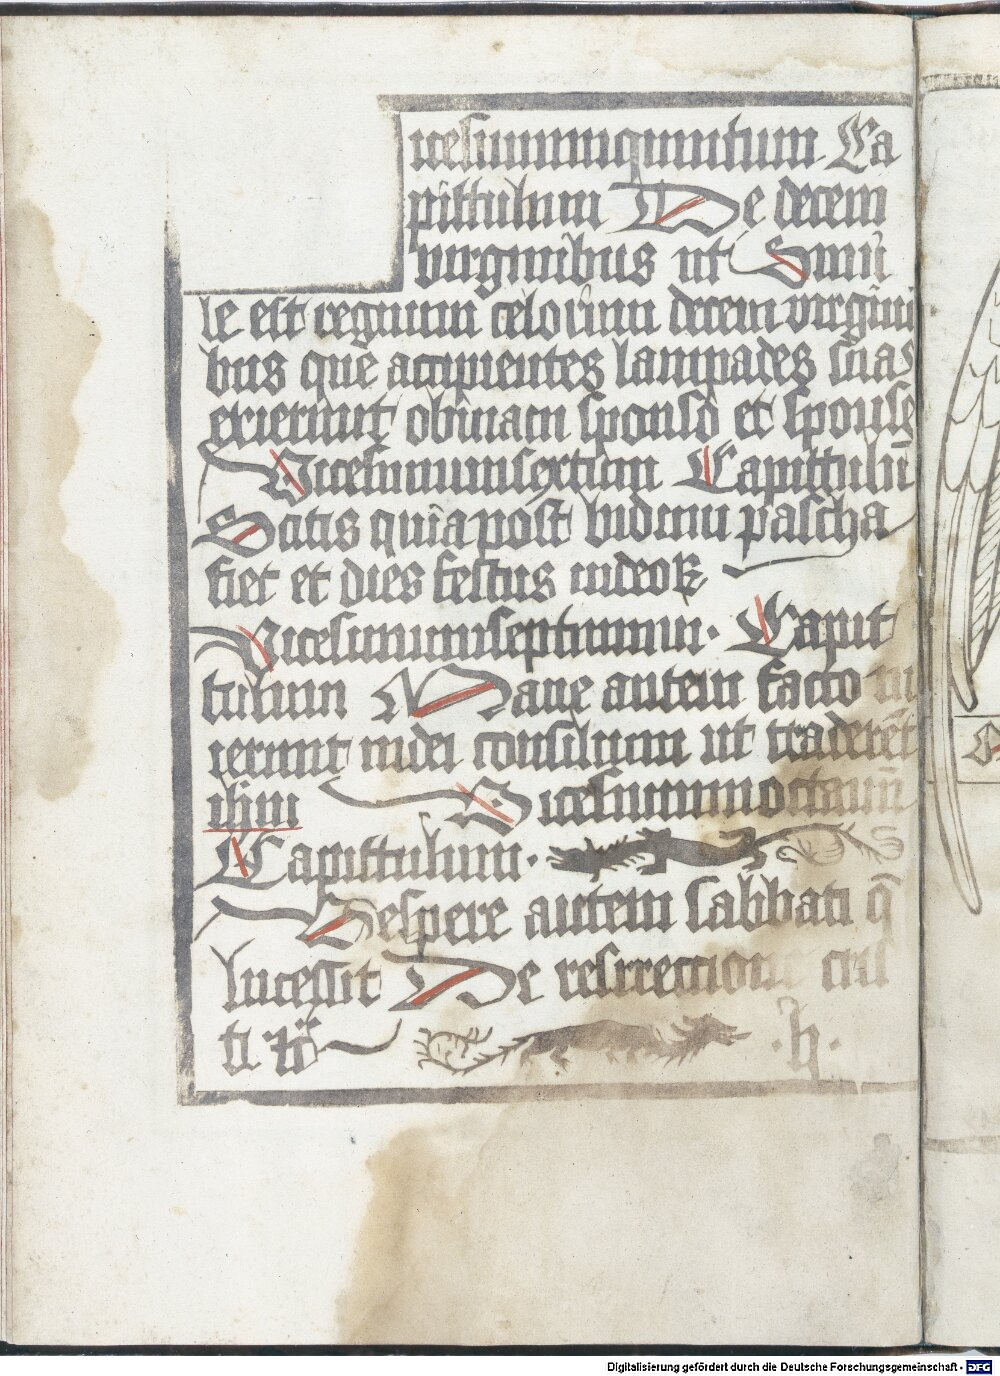 icesimumquintum Ca
pittulum De decem
virginibus ut Simi
le est regnum celorum decem virgini
bus que accipientes lampades suas
exierunt obuiam sponso et sponse
Vicesimumsextum Capittulū
Scitis quia post biduum pascha
fiet et dies festus iudeoꝝ
Vicesimumseptimum · Capit
tulum Mane autem facto in
ierunt iudei consilium ut traderēt
ihm Vicesimumoctauū
Capittulum ·
Vespere autem sabbati q̄
lucessit De resrrectione cris
ti
· h ·
Digitalisierung gefördert durch die Deutsche Forschungsgemeinschaft - DFG